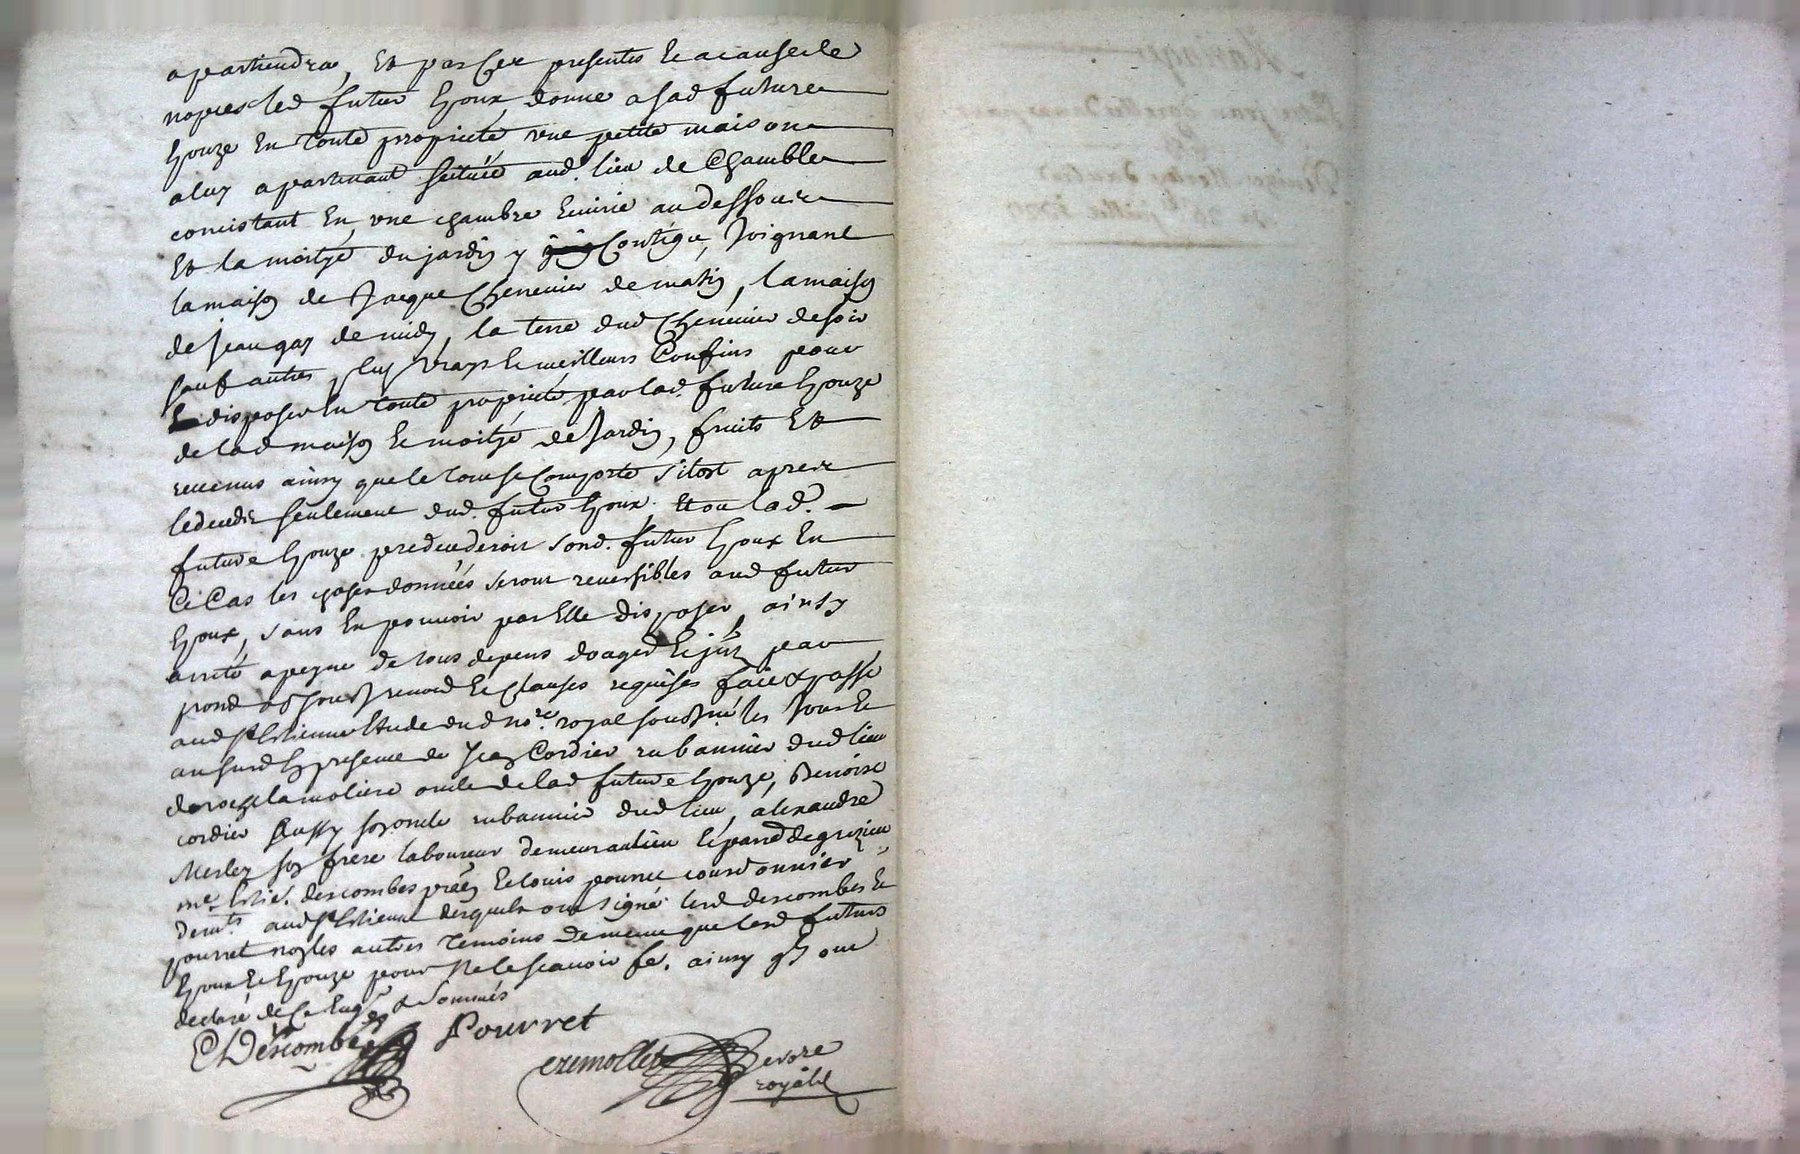 apartiendra, Et par Ces presentes Et a cause de
nopces led futur Epoux donne a sad future
Epouze En toute proprieté une petite maison
a luy apartenant scituée aud. lieu de Chambles
concistant En une chambre Ecurie au dessous
Et la moityé du jardin y Contigu, Joignant
la maison de Jacque Chenevier de matin, la maison
de Jean gay de midy, la terre dud Chenevier de soir
sauf autres plus vrays Et meilleurs Confins pour
En disposer En toute proprieté par lad. future Epouze
de lad maison Et moityé de Jardin, fruits Et
revenus ainsy que le tout se Comporte sitost apres
le deceds seulement dud. futur Epoux. Et ou lad.
future Epouze predecederoit sond. futur Epoux En
Ce Cas les choses données seront reversibles aud futur
Epoux, sans En pouvoir par Elle disposer, ainsy
arreté a peyne de tous depens domages Et jnts par
promd obson renond Et Clauses requises fait & passé
aud St Etienne Etude dud nore. royal soussigné les Jour Et
an susd En presence de Jean Cordier rubannier dud lieu
de roche la moliere oncle de lad future Epouze, Benoist
cordier aussy son oncle rubannier dud lieu, alexandre
Merley son frere laboureur demeurant au lieu
me Estie. descombes prat. Et Louis pourret courdonnier
demts. aud St Etienne desquels ont signé lesd descombes Et
pourret non les autres temoins de meme que lesd futurs
Epoux Et Epouze pour ne le scavoir fe. ainsy qls ont
declaré de Ce Enqs & Sommés
Descombes Pourret
cremollet
royal
Mariage